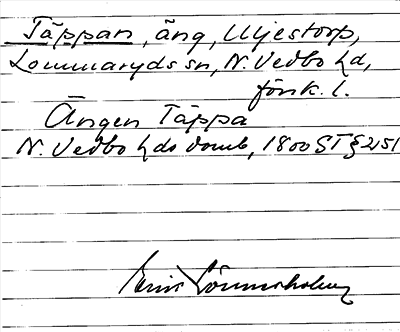 Täppan, äng, Uljestorp,
Lommaryds sn, N. Vedbo hd,
försk. l.
Ängen Täppa
N. Vedbo hds domb, 1800 ST § 251
Erik Lönnerholm